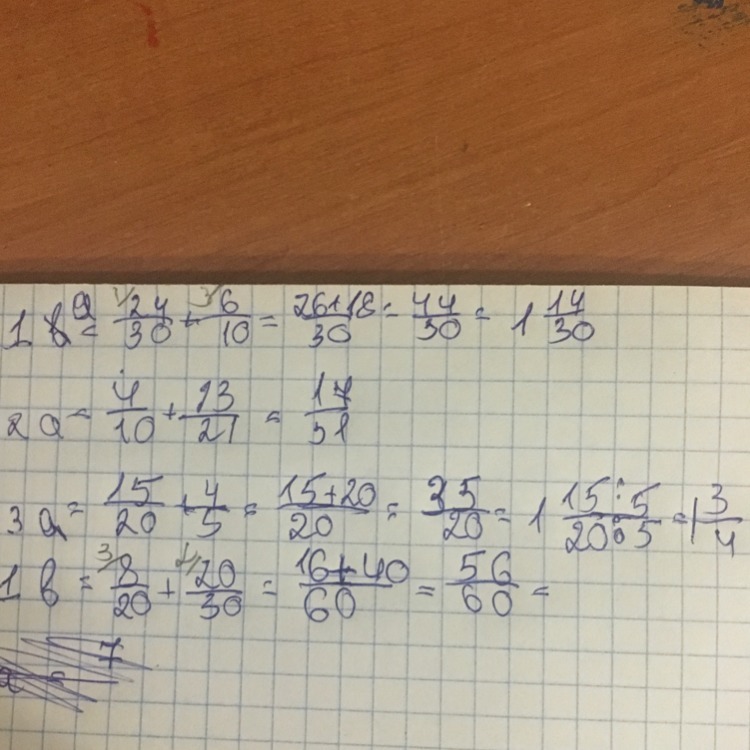 1 a = 24/30 + 6/10 = 26+18/30 = 44/30 = 1 14/30
2 a = 4/10 + 13/21 = 17/31
3 a = 15/20 + 4/5 = 15+20/20 = 35/20 = 1 15:5/20:5 = 1 3/4
1 b = 8/20 + 20/30 = 16+40/60 = 56/60 =
7